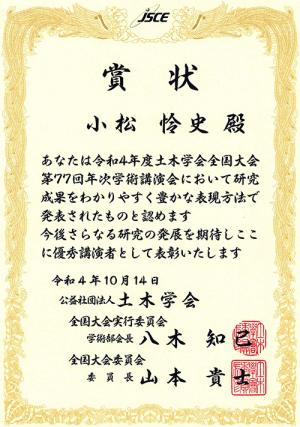 JSCE
賞状
小松 怜史 殿
あなたは令和4年度土木学会全国大会
第77回年次学術講演会において研究
成果をわかりやすく豊かな表現方法で
発表されたものと認めます
今後さらなる研究の発展を期待しここ
に優秀講演者として表彰いたします
令和4年10月14日
公益社団法人 土木学会
全国大会実行委員会
学術部会長 八木 知己
全国大会委員会
委員長 山本 貴士